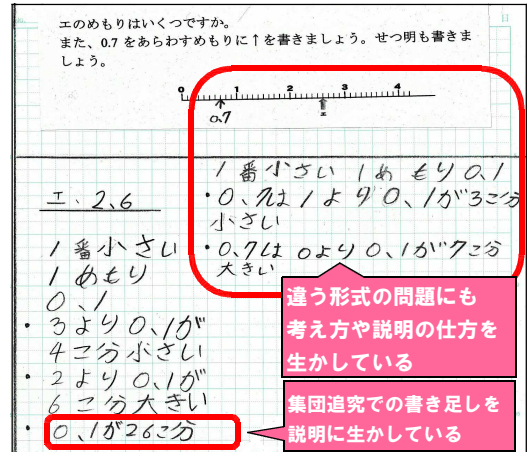 エのめもりはいくつですか。
また、0.7 をあらわすめもりに↑を書きましょう。せつ明も書きま
しょう。
0 1 2 3 4
0.7 エ
1番小さい 1めもり 0、1
・0、7は1より0、1が3こ分
小さい
・0、7は0より0、1が7こ分
大きい
エ. 2、6
1番小さい
1めもり
0、1
・3より0、1が
4こ分小さい
・2より0、1が
6こ分大きい
・0、1が26こ分
違う形式の問題にも
考え方や説明の仕方を
生かしている
集団追究での書き足しを
説明に生かしている